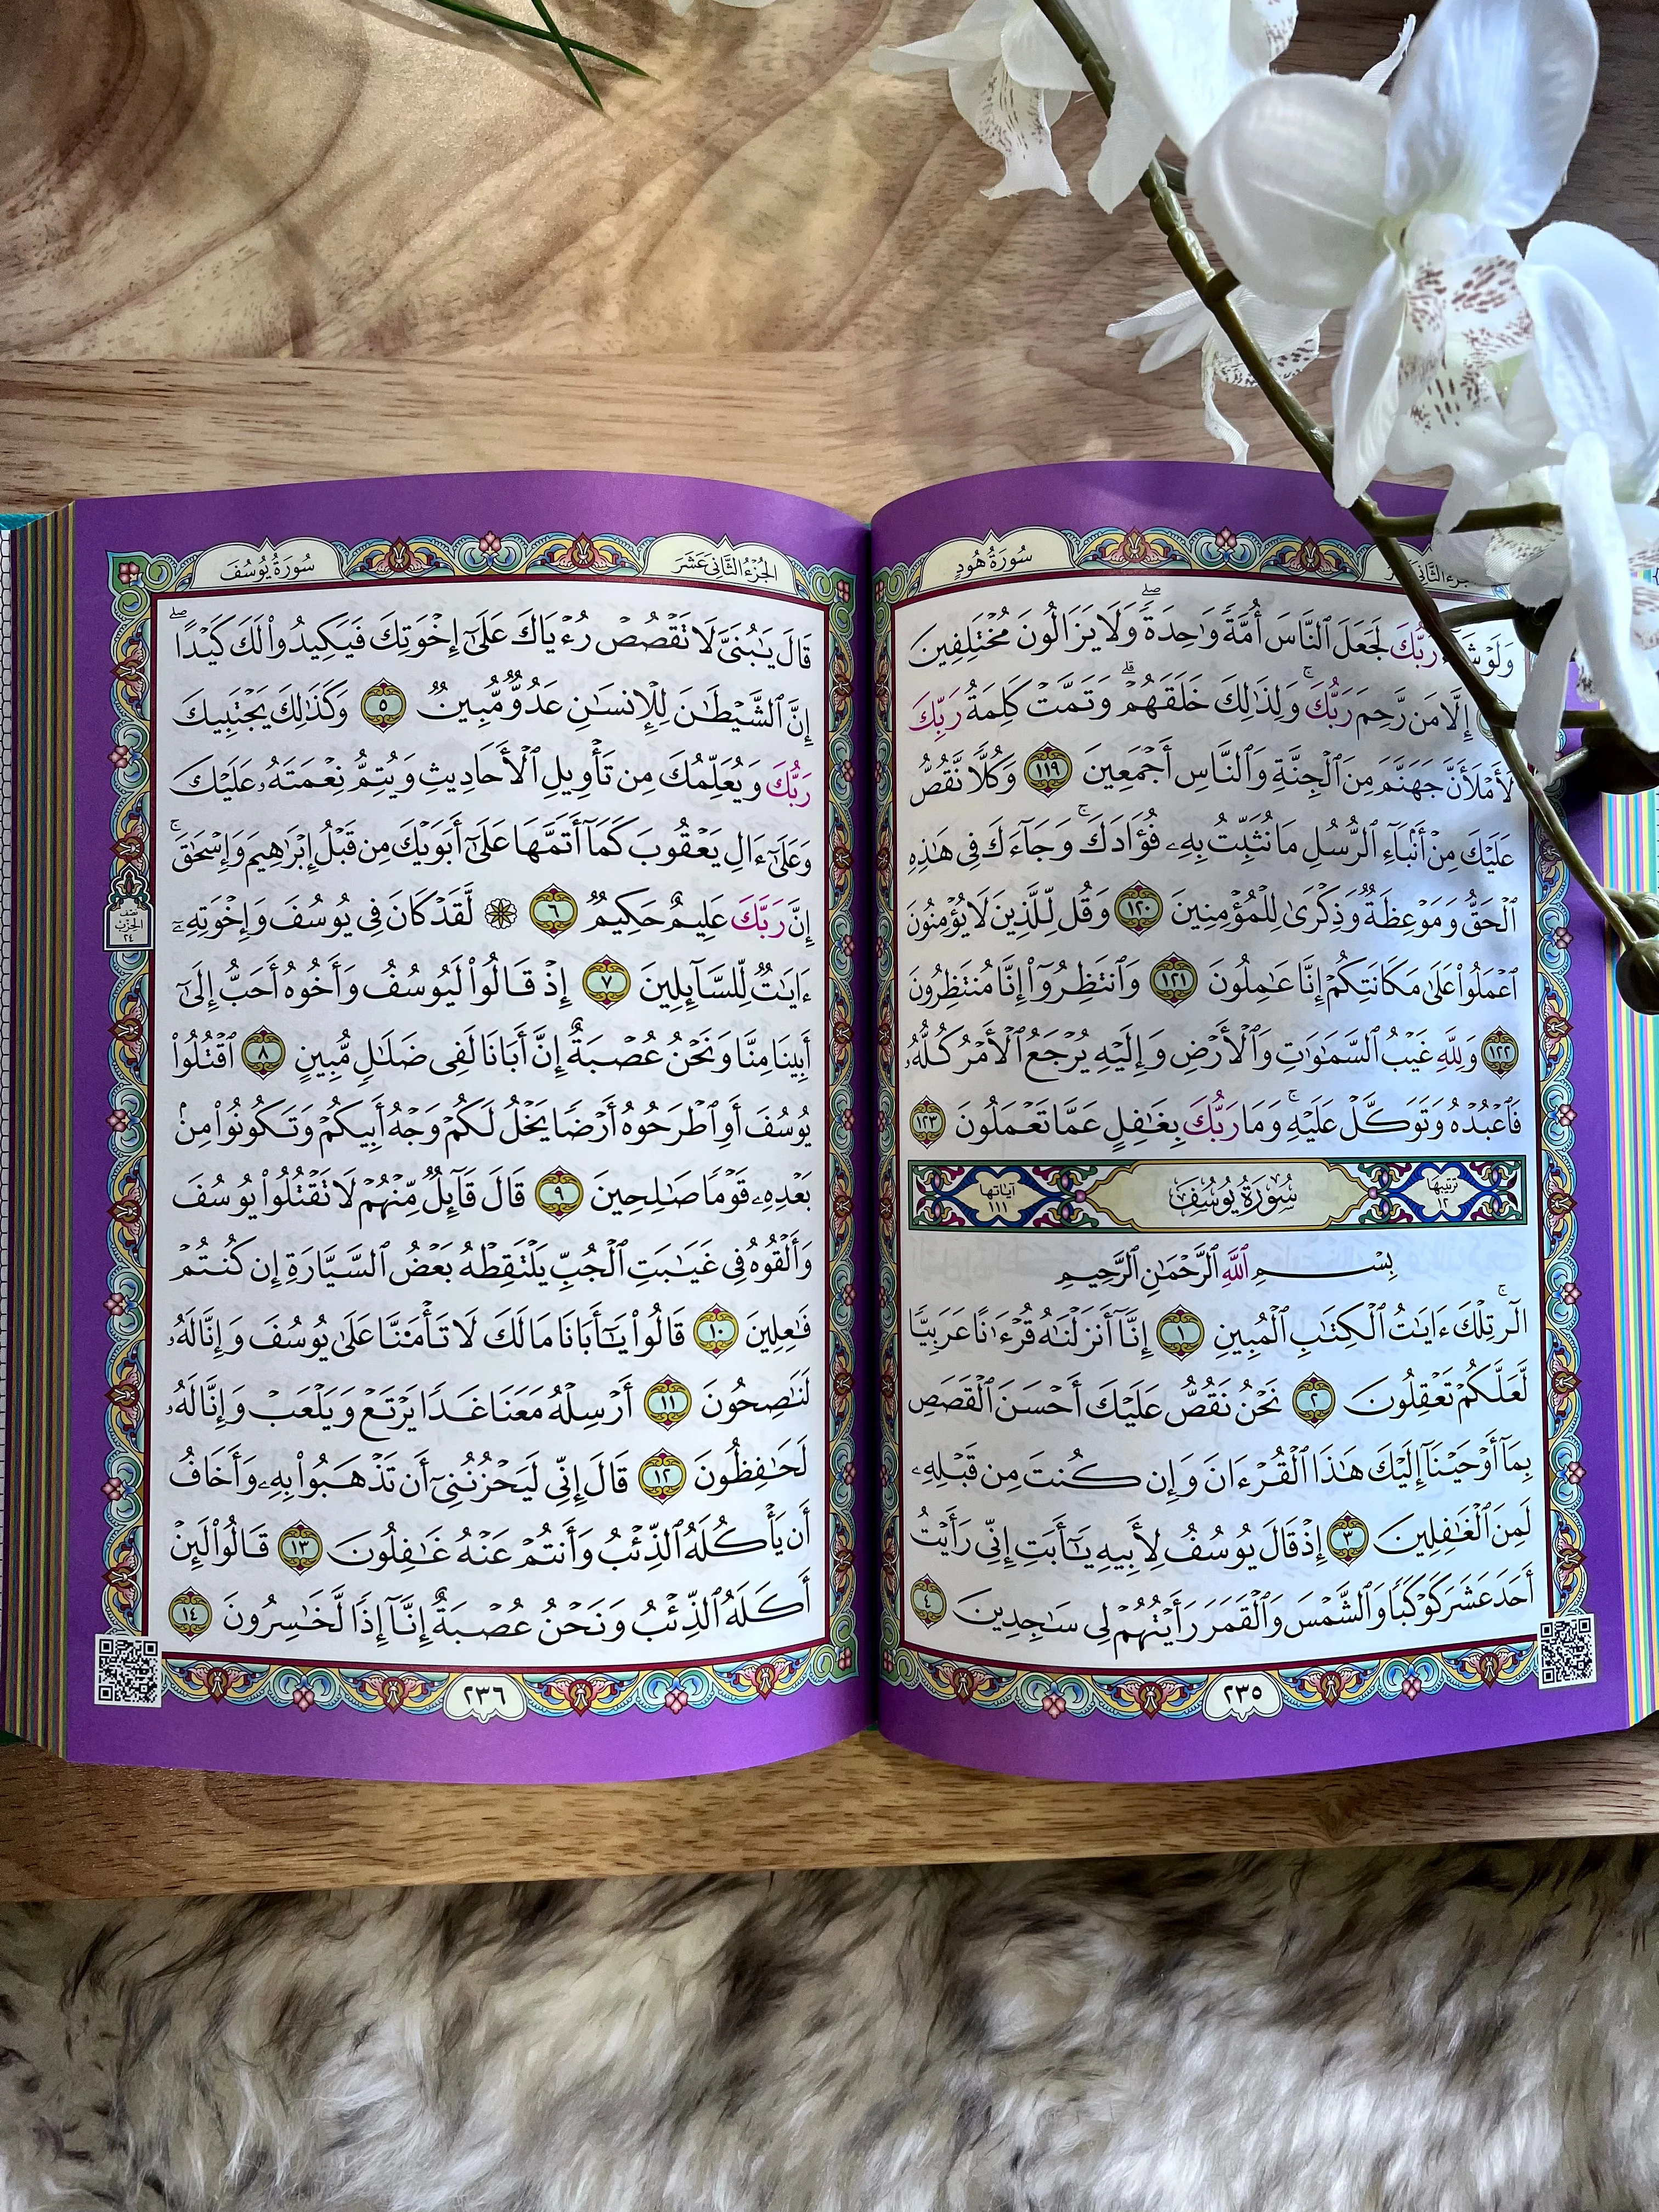 سُورَةُ هُودٍ
وَلَوْ رَبُّكَ لَجَعَلَ ٱلنَّاسَ أُمَّةً وَٰحِدَةً ۖ وَلَا يَزَالُونَ مُخْتَلِفِينَ
إِلَّا مَن رَّحِمَ رَبُّكَ ۚ وَلِذَٰلِكَ خَلَقَهُمْ ۗ وَتَمَّتْ كَلِمَةُ رَبِّكَ
لَأَمْلَأَنَّ جَهَنَّمَ مِنَ ٱلْجِنَّةِ وَٱلنَّاسِ أَجْمَعِينَ ١١٩ وَكُلًّا نَّقُصُّ
عَلَيْكَ مِنْ أَنۢبَآءِ ٱلرُّسُلِ مَا نُثَبِّتُ بِهِۦ فُؤَادَكَ ۚ وَجَآءَكَ فِى هَٰذِهِ
ٱلْحَقُّ وَمَوْعِظَةٌ وَذِكْرَىٰ لِلْمُؤْمِنِينَ ١٢٠ وَقُل لِّلَّذِينَ لَا يُؤْمِنُونَ
ٱعْمَلُوا۟ عَلَىٰ مَكَانَتِكُمْ إِنَّا عَٰمِلُونَ ١٢١ وَٱنتَظِرُوٓا۟ إِنَّا مُنتَظِرُونَ
١٢٢ وَلِلَّهِ غَيْبُ ٱلسَّمَٰوَٰتِ وَٱلْأَرْضِ وَإِلَيْهِ يُرْجَعُ ٱلْأَمْرُ كُلُّهُۥ
فَٱعْبُدْهُ وَتَوَكَّلْ عَلَيْهِ ۚ وَمَا رَبُّكَ بِغَٰفِلٍ عَمَّا تَعْمَلُونَ ١٢٣
ترتيبها ١٢ سُورَةُ يُوسُفَ آياتها ١١١
بِسْمِ ٱللَّهِ ٱلرَّحْمَٰنِ ٱلرَّحِيمِ
الٓر ۚ تِلْكَ ءَايَٰتُ ٱلْكِتَٰبِ ٱلْمُبِينِ ١ إِنَّآ أَنزَلْنَٰهُ قُرْءَٰنًا عَرَبِيًّا
لَّعَلَّكُمْ تَعْقِلُونَ ٢ نَحْنُ نَقُصُّ عَلَيْكَ أَحْسَنَ ٱلْقَصَصِ
بِمَآ أَوْحَيْنَآ إِلَيْكَ هَٰذَا ٱلْقُرْءَانَ وَإِن كُنتَ مِن قَبْلِهِۦ
لَمِنَ ٱلْغَٰفِلِينَ ٣ إِذْ قَالَ يُوسُفُ لِأَبِيهِ يَٰٓأَبَتِ إِنِّى رَأَيْتُ
أَحَدَ عَشَرَ كَوْكَبًا وَٱلشَّمْسَ وَٱلْقَمَرَ رَأَيْتُهُمْ لِى سَٰجِدِينَ ٤
٢٣٥
الجُزْءُ الثَّانِي عَشَرَ سُورَةُ يُوسُفَ
قَالَ يَٰبُنَىَّ لَا تَقْصُصْ رُءْيَاكَ عَلَىٰٓ إِخْوَتِكَ فَيَكِيدُوا۟ لَكَ كَيْدًا ۖ
إِنَّ ٱلشَّيْطَٰنَ لِلْإِنسَٰنِ عَدُوٌّ مُّبِينٌ ٥ وَكَذَٰلِكَ يَجْتَبِيكَ
رَبُّكَ وَيُعَلِّمُكَ مِن تَأْوِيلِ ٱلْأَحَادِيثِ وَيُتِمُّ نِعْمَتَهُۥ عَلَيْكَ
وَعَلَىٰٓ ءَالِ يَعْقُوبَ كَمَآ أَتَمَّهَا عَلَىٰٓ أَبَوَيْكَ مِن قَبْلُ إِبْرَٰهِيمَ وَإِسْحَٰقَ ۚ
إِنَّ رَبَّكَ عَلِيمٌ حَكِيمٌ ٦ ۞ لَّقَدْ كَانَ فِى يُوسُفَ وَإِخْوَتِهِۦٓ
ءَايَٰتٌ لِّلسَّآئِلِينَ ٧ إِذْ قَالُوا۟ لَيُوسُفُ وَأَخُوهُ أَحَبُّ إِلَىٰٓ
أَبِينَا مِنَّا وَنَحْنُ عُصْبَةٌ إِنَّ أَبَانَا لَفِى ضَلَٰلٍ مُّبِينٍ ٨ ٱقْتُلُوا۟
يُوسُفَ أَوِ ٱطْرَحُوهُ أَرْضًا يَخْلُ لَكُمْ وَجْهُ أَبِيكُمْ وَتَكُونُوا۟ مِنۢ
بَعْدِهِۦ قَوْمًا صَٰلِحِينَ ٩ قَالَ قَآئِلٌ مِّنْهُمْ لَا تَقْتُلُوا۟ يُوسُفَ
وَأَلْقُوهُ فِى غَيَٰبَتِ ٱلْجُبِّ يَلْتَقِطْهُ بَعْضُ ٱلسَّيَّارَةِ إِن كُنتُمْ
فَٰعِلِينَ ١٠ قَالُوا۟ يَٰٓأَبَانَا مَا لَكَ لَا تَأْمَ۫نَّا عَلَىٰ يُوسُفَ وَإِنَّا لَهُۥ
لَنَٰصِحُونَ ١١ أَرْسِلْهُ مَعَنَا غَدًا يَرْتَعْ وَيَلْعَبْ وَإِنَّا لَهُۥ
لَحَٰفِظُونَ ١٢ قَالَ إِنِّى لَيَحْزُنُنِىٓ أَن تَذْهَبُوا۟ بِهِۦ وَأَخَافُ
أَن يَأْكُلَهُ ٱلذِّئْبُ وَأَنتُمْ عَنْهُ غَٰفِلُونَ ١٣ قَالُوا۟ لَئِنْ
أَكَلَهُ ٱلذِّئْبُ وَنَحْنُ عُصْبَةٌ إِنَّآ إِذًا لَّخَٰسِرُونَ ١٤
نصف
الحزب
٢٤
٢٣٦